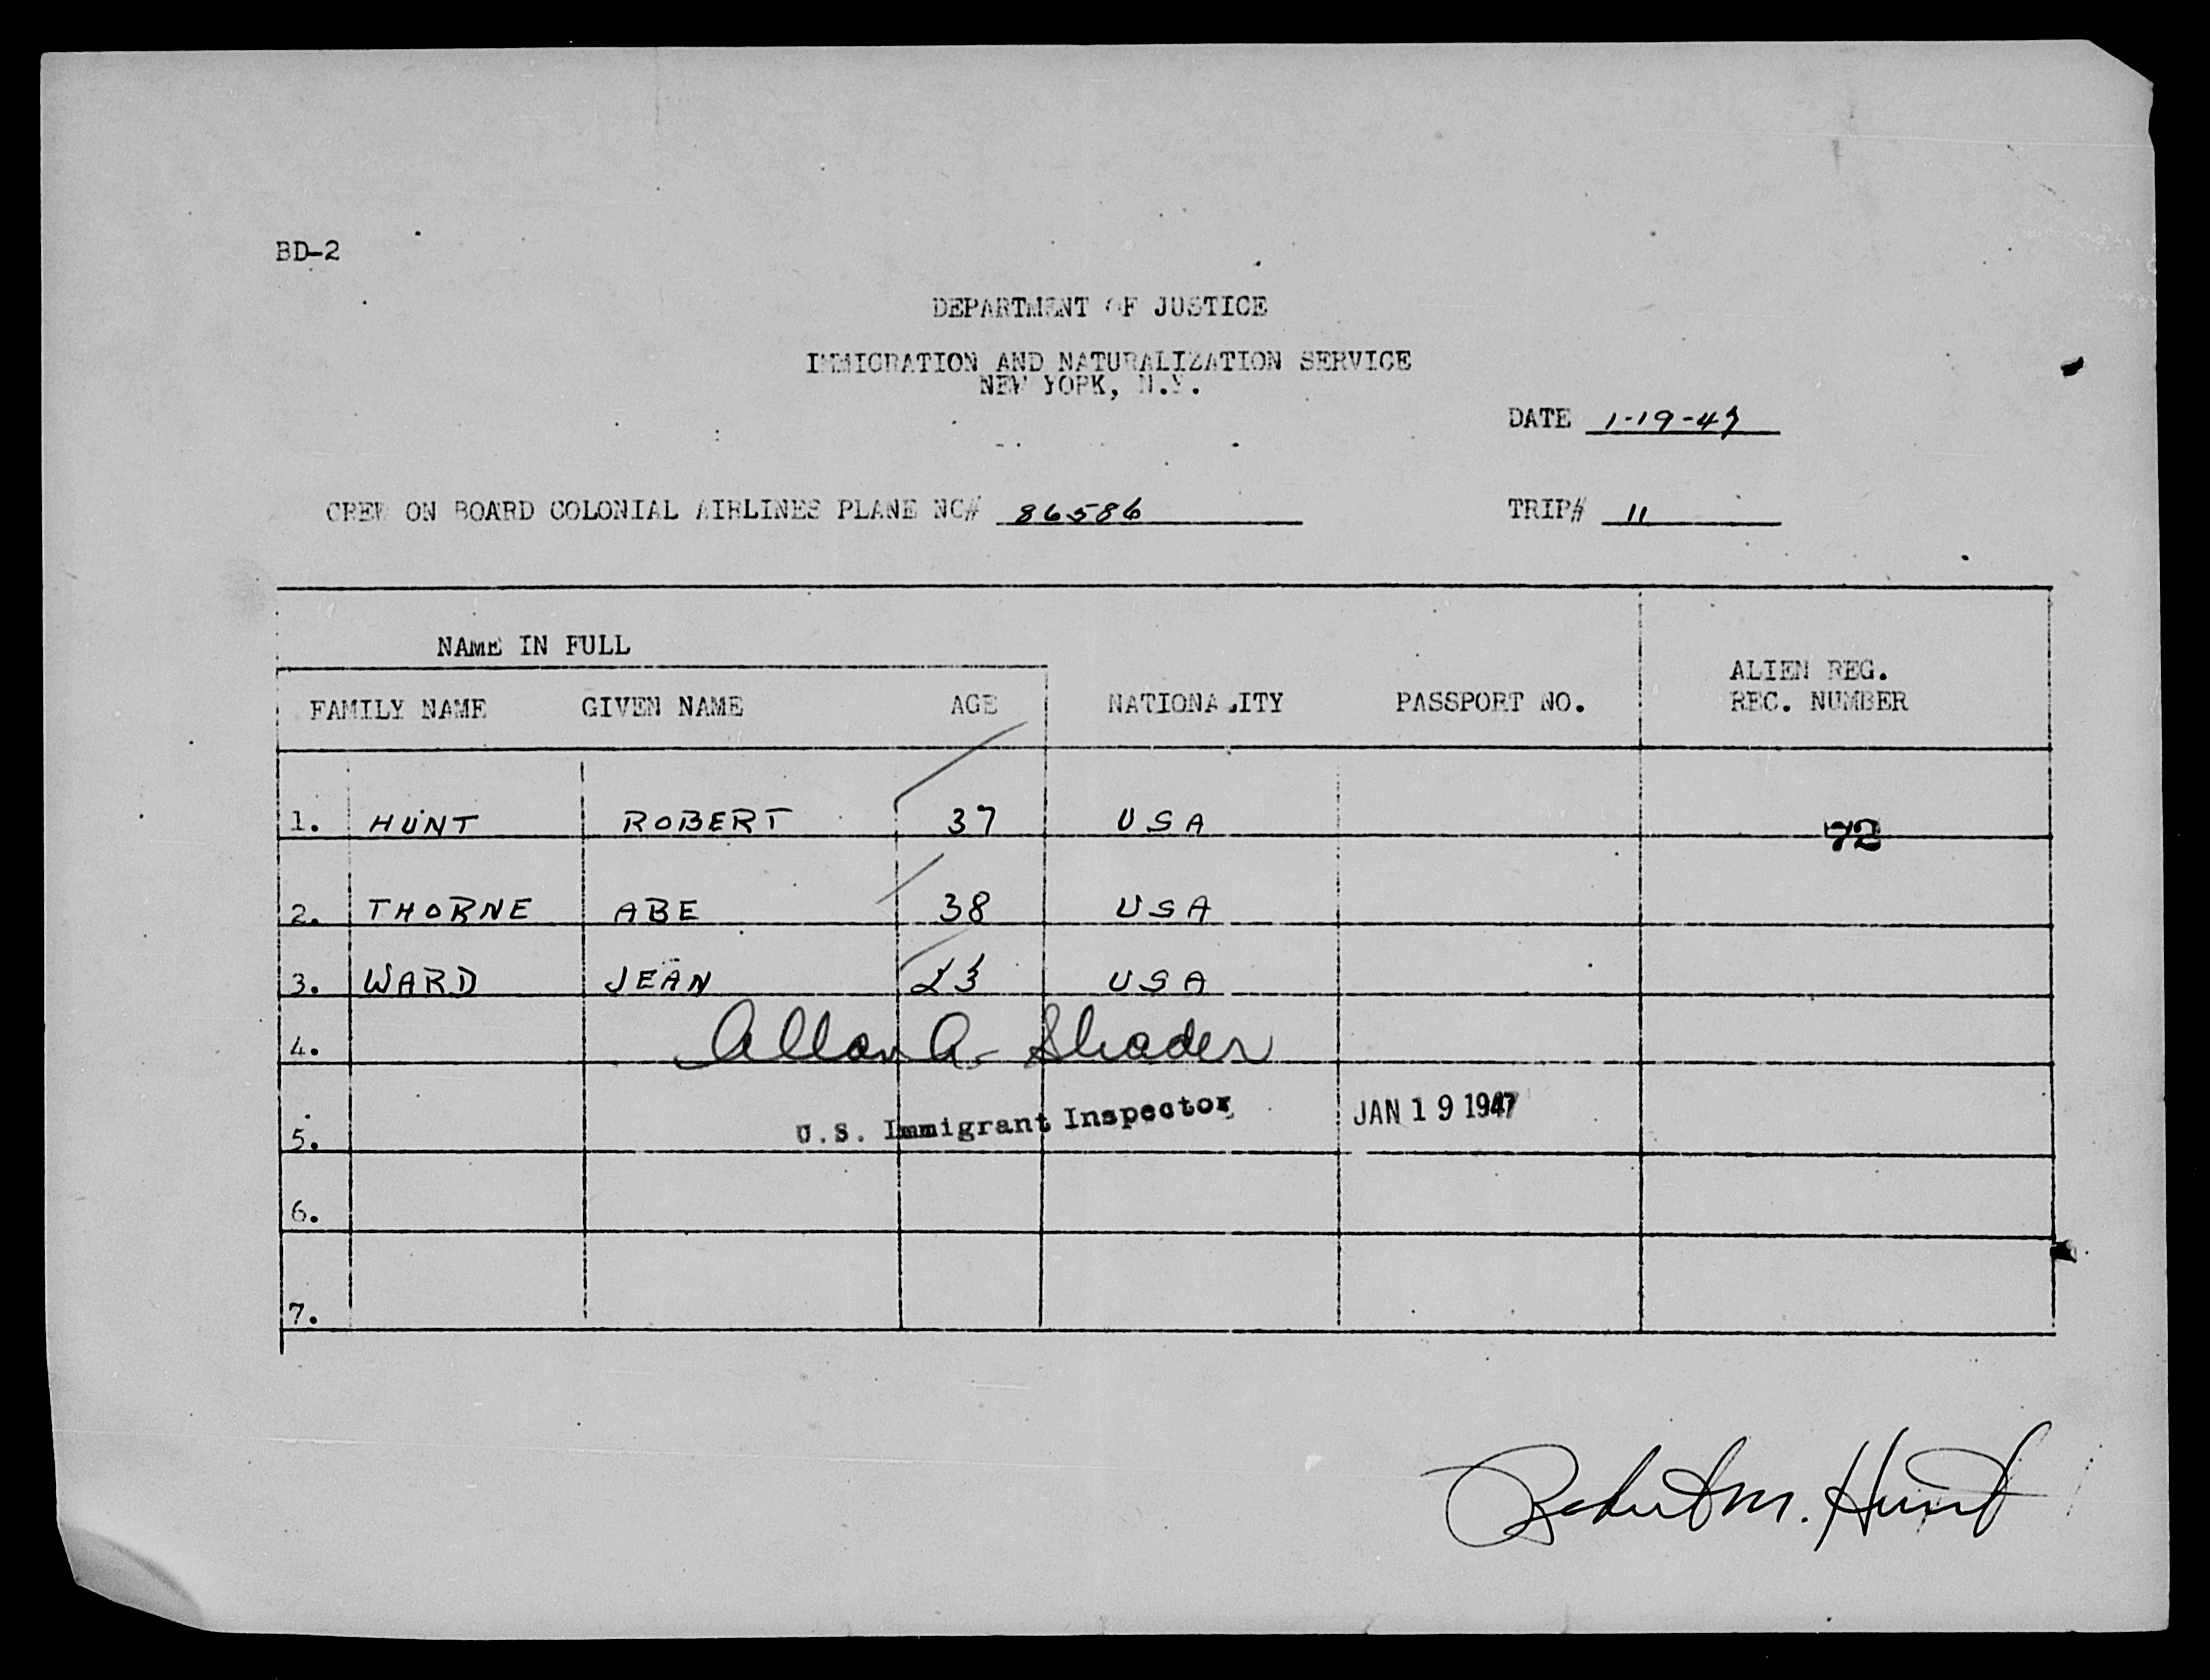 BD-2
DEPARTMENT OF JUSTICE
IMMIGRATION AND NATURALIZATION SERVICE
NEW YORK, N.Y.
DATE 1-19-47
CREW ON BOARD COLONIAL AIRLINES PLANE NC# 86586 TRIP# 11
NAME IN FULL
ALIEN REG.
FAMILY NAME GIVEN NAME AGE NATIONALITY PASSPORT NO. REC. NUMBER
1. HUNT ROBERT 37 USA 72
2. THORNE ABE 38 USA
3. WARD JEAN 23 USA
4. Allan A. Shader
5. U.S. Immigrant Inspector JAN 19 1947
6.
7.
Robert M. Hunt